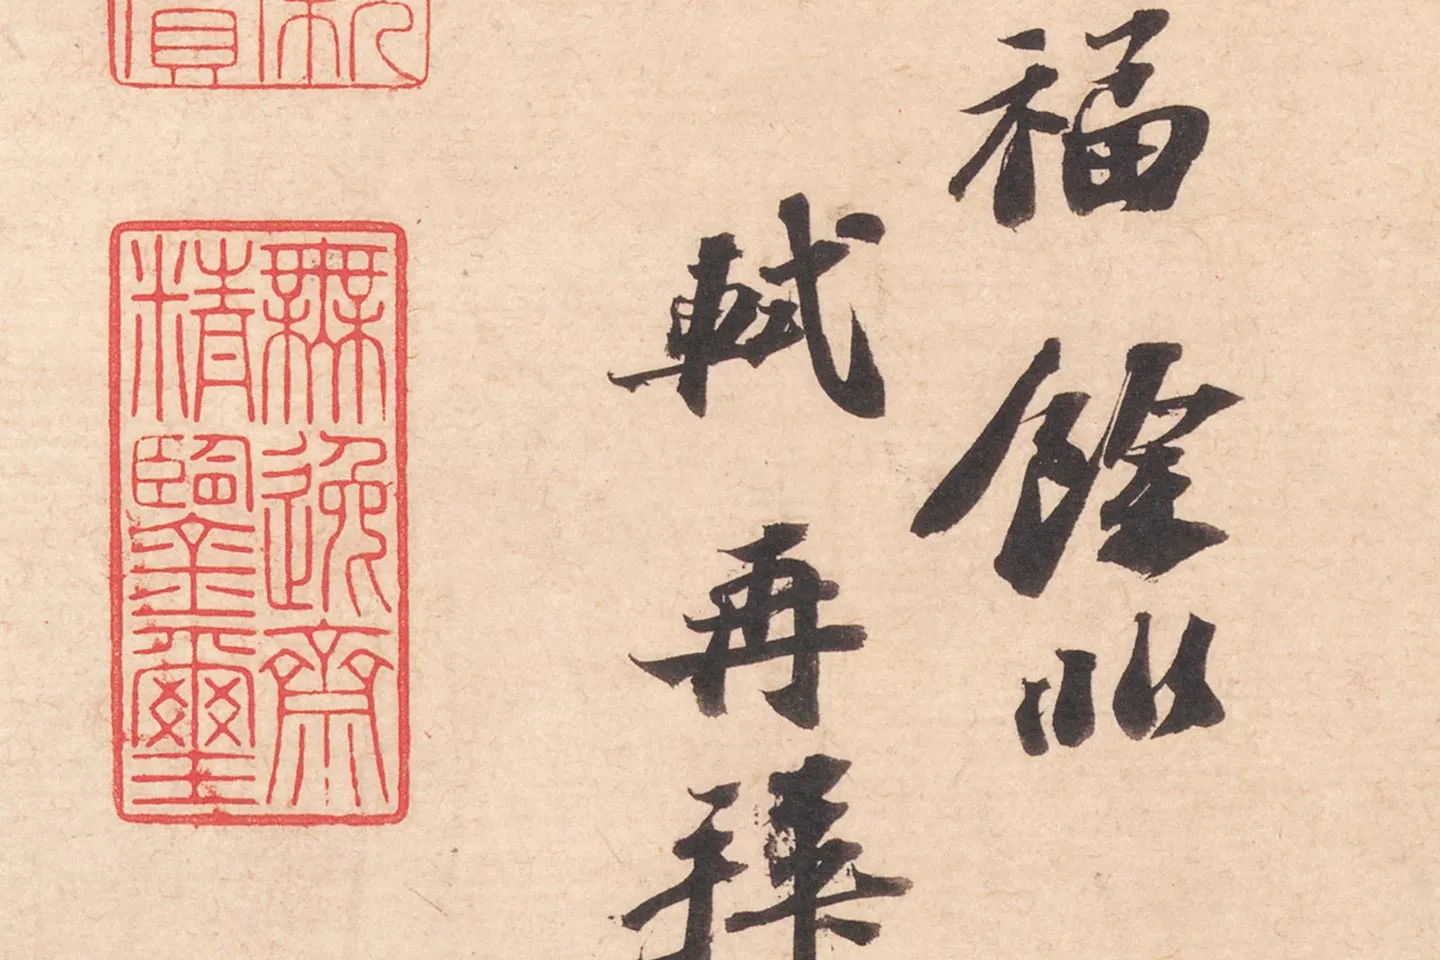 福餘昭
軾再拜
無逸齋
精鑒璽